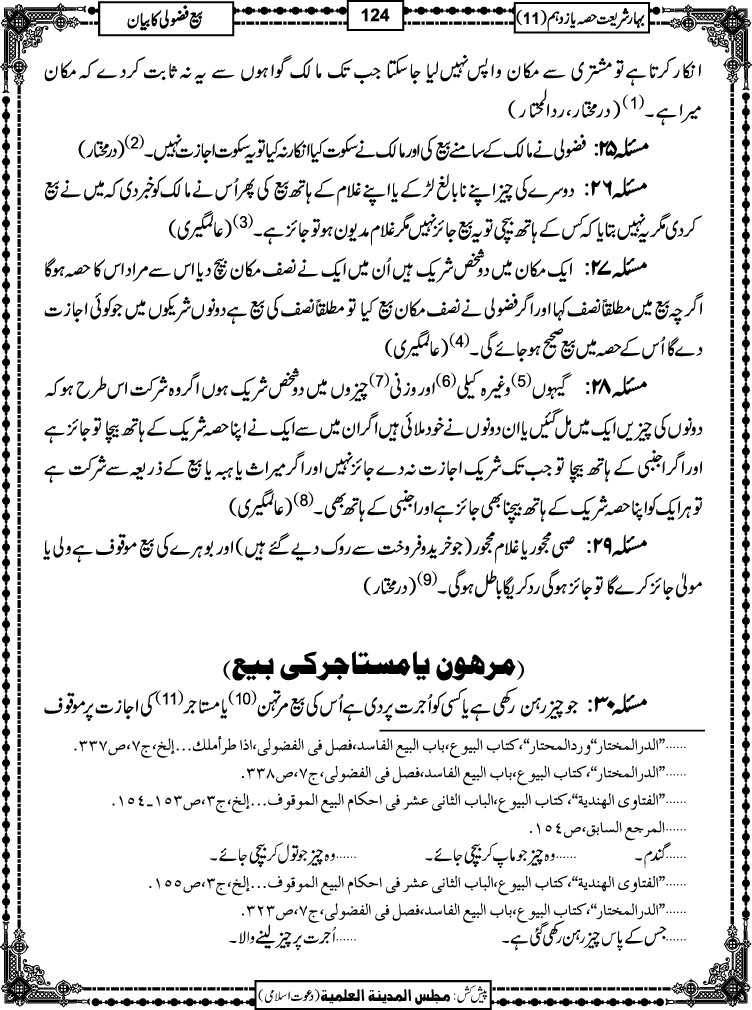 بہار شریعت حصہ یازدہم (11)
124
بیع فضولی کا بیان
انکار کرتا ہے تو مشتری سے مکان واپس نہیں لیا جاسکتا جب تک مالک گواہوں سے یہ نہ ثابت کردے کہ مکان
میرا ہے۔(1) (درمختار، ردالمحتار)
مسئلہ ۲۵: فضولی نے مالک کے سامنے بیع کی اور مالک نے سکوت کیا انکار نہ کیا تو یہ سکوت اجازت نہیں۔(2) (درمختار)
مسئلہ ۲۶: دوسرے کی چیز اپنے نابالغ لڑکے یا اپنے غلام کے ہاتھ بیع کی پھر اُس نے مالک کو خبر دی کہ میں نے بیع
کردی مگر یہ نہیں بتایا کہ کس کے ہاتھ بیچی تو یہ بیع جائز نہیں مگر غلام مدیون ہو تو جائز ہے۔(3) (عالمگیری)
مسئلہ ۲۷: ایک مکان میں دو شخص شریک ہیں اُن میں ایک نے نصف مکان بیچ دیا اس سے مراد اس کا حصہ ہوگا
اگرچہ بیع میں مطلقاً نصف کہا اور اگر فضولی نے نصف مکان بیع کیا تو مطلقاً نصف کی بیع ہے دونوں شریکوں میں جو کوئی اجازت
دے گا اُس کے حصہ میں بیع صحیح ہوجائے گی۔(4) (عالمگیری)
مسئلہ ۲۸: گیہوں(5) وغیرہ کیلی(6) اور وزنی(7) چیزوں میں دو شخص شریک ہوں اگر وہ شرکت اس طرح ہو کہ
دونوں کی چیزیں ایک میں مل گئیں یا ان دونوں نے خود ملائی ہیں اگر ان میں سے ایک نے اپنا حصہ شریک کے ہاتھ بیچا تو جائز ہے
اور اگر اجنبی کے ہاتھ بیچا تو جب تک شریک اجازت نہ دے جائز نہیں اور اگر میراث یا ہبہ یا بیع کے ذریعہ سے شرکت ہے
تو ہر ایک کو اپنا حصہ شریک کے ہاتھ بیچنا بھی جائز ہے اور اجنبی کے ہاتھ بھی۔(8) (عالمگیری)
مسئلہ ۲۹: صبی محجور یا غلام محجور (جو خرید و فروخت سے روک دیے گئے ہیں) اور بوہرے کی بیع موقوف ہے ولی یا
مولیٰ جائز کرے گا تو جائز ہوگی رد کریگا باطل ہوگی۔(9) (درمختار)
(مرہون یا مستاجر کی بیع)
مسئلہ ۳۰: جو چیز رہن رکھی ہے یا کسی کو اُجرت پر دی ہے اُس کی بیع مرتہن(10) یا مستاجر(11) کی اجازت پر موقوف
......"الدرالمختار" و"ردالمحتار"، کتاب البیوع، باب البیع الفاسد، فصل فی الفضولی، اذا طرأ ملك...إلخ، ج۷، ص۳۳۷.
......"الدرالمختار"، کتاب البیوع، باب البیع الفاسد، فصل فی الفضولی، ج۷، ص۳۳۸.
......"الفتاوی الھندیة"، کتاب البیوع، الباب الثانی عشر فی احکام البیع الموقوف...إلخ، ج۳، ص۱۵۳۔۱۵٤.
......المرجع السابق، ص۱۵٤.
......گندم۔ ......وہ چیز جو ماپ کر بیچی جائے۔ ......وہ چیز جو تول کر بیچی جائے۔
......"الفتاوی الھندیة"، کتاب البیوع، الباب الثانی عشر فی احکام البیع الموقوف...إلخ، ج۳، ص۱۵۵.
......"الدرالمختار"، کتاب البیوع، باب البیع الفاسد، فصل فی الفضولی، ج۷، ص۳۲۳.
......جس کے پاس چیز رہن رکھی گئی ہے۔ ......اُجرت پر چیز لینے والا۔
پیش کش: مجلس المدینة العلمیة (دعوت اسلامی)